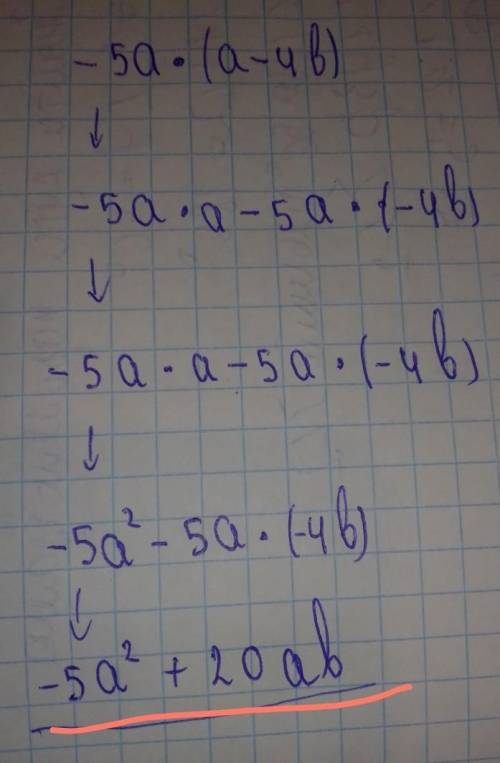 -5a·(a-4b)
↓
-5a·a-5a·(-4b)
↓
-5a·a-5a·(-4b)
↓
-5a²-5a·(-4b)
↓
-5a²+20ab